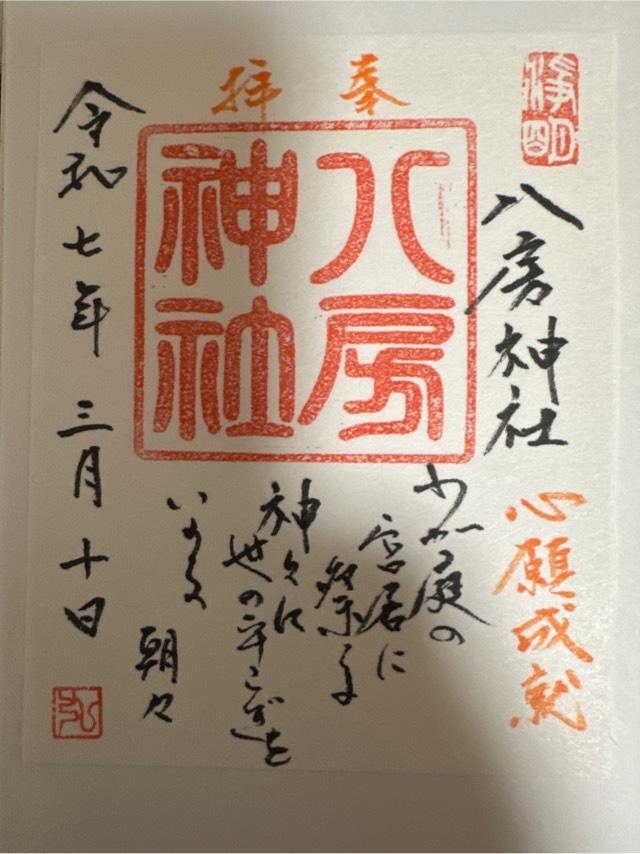 奉拝
八房神社
心願成就
八房
神社
わが庭の
宮居に
祭る
神々に
世の平らぎを
いのる
朝々
令和七年三月十日
弘